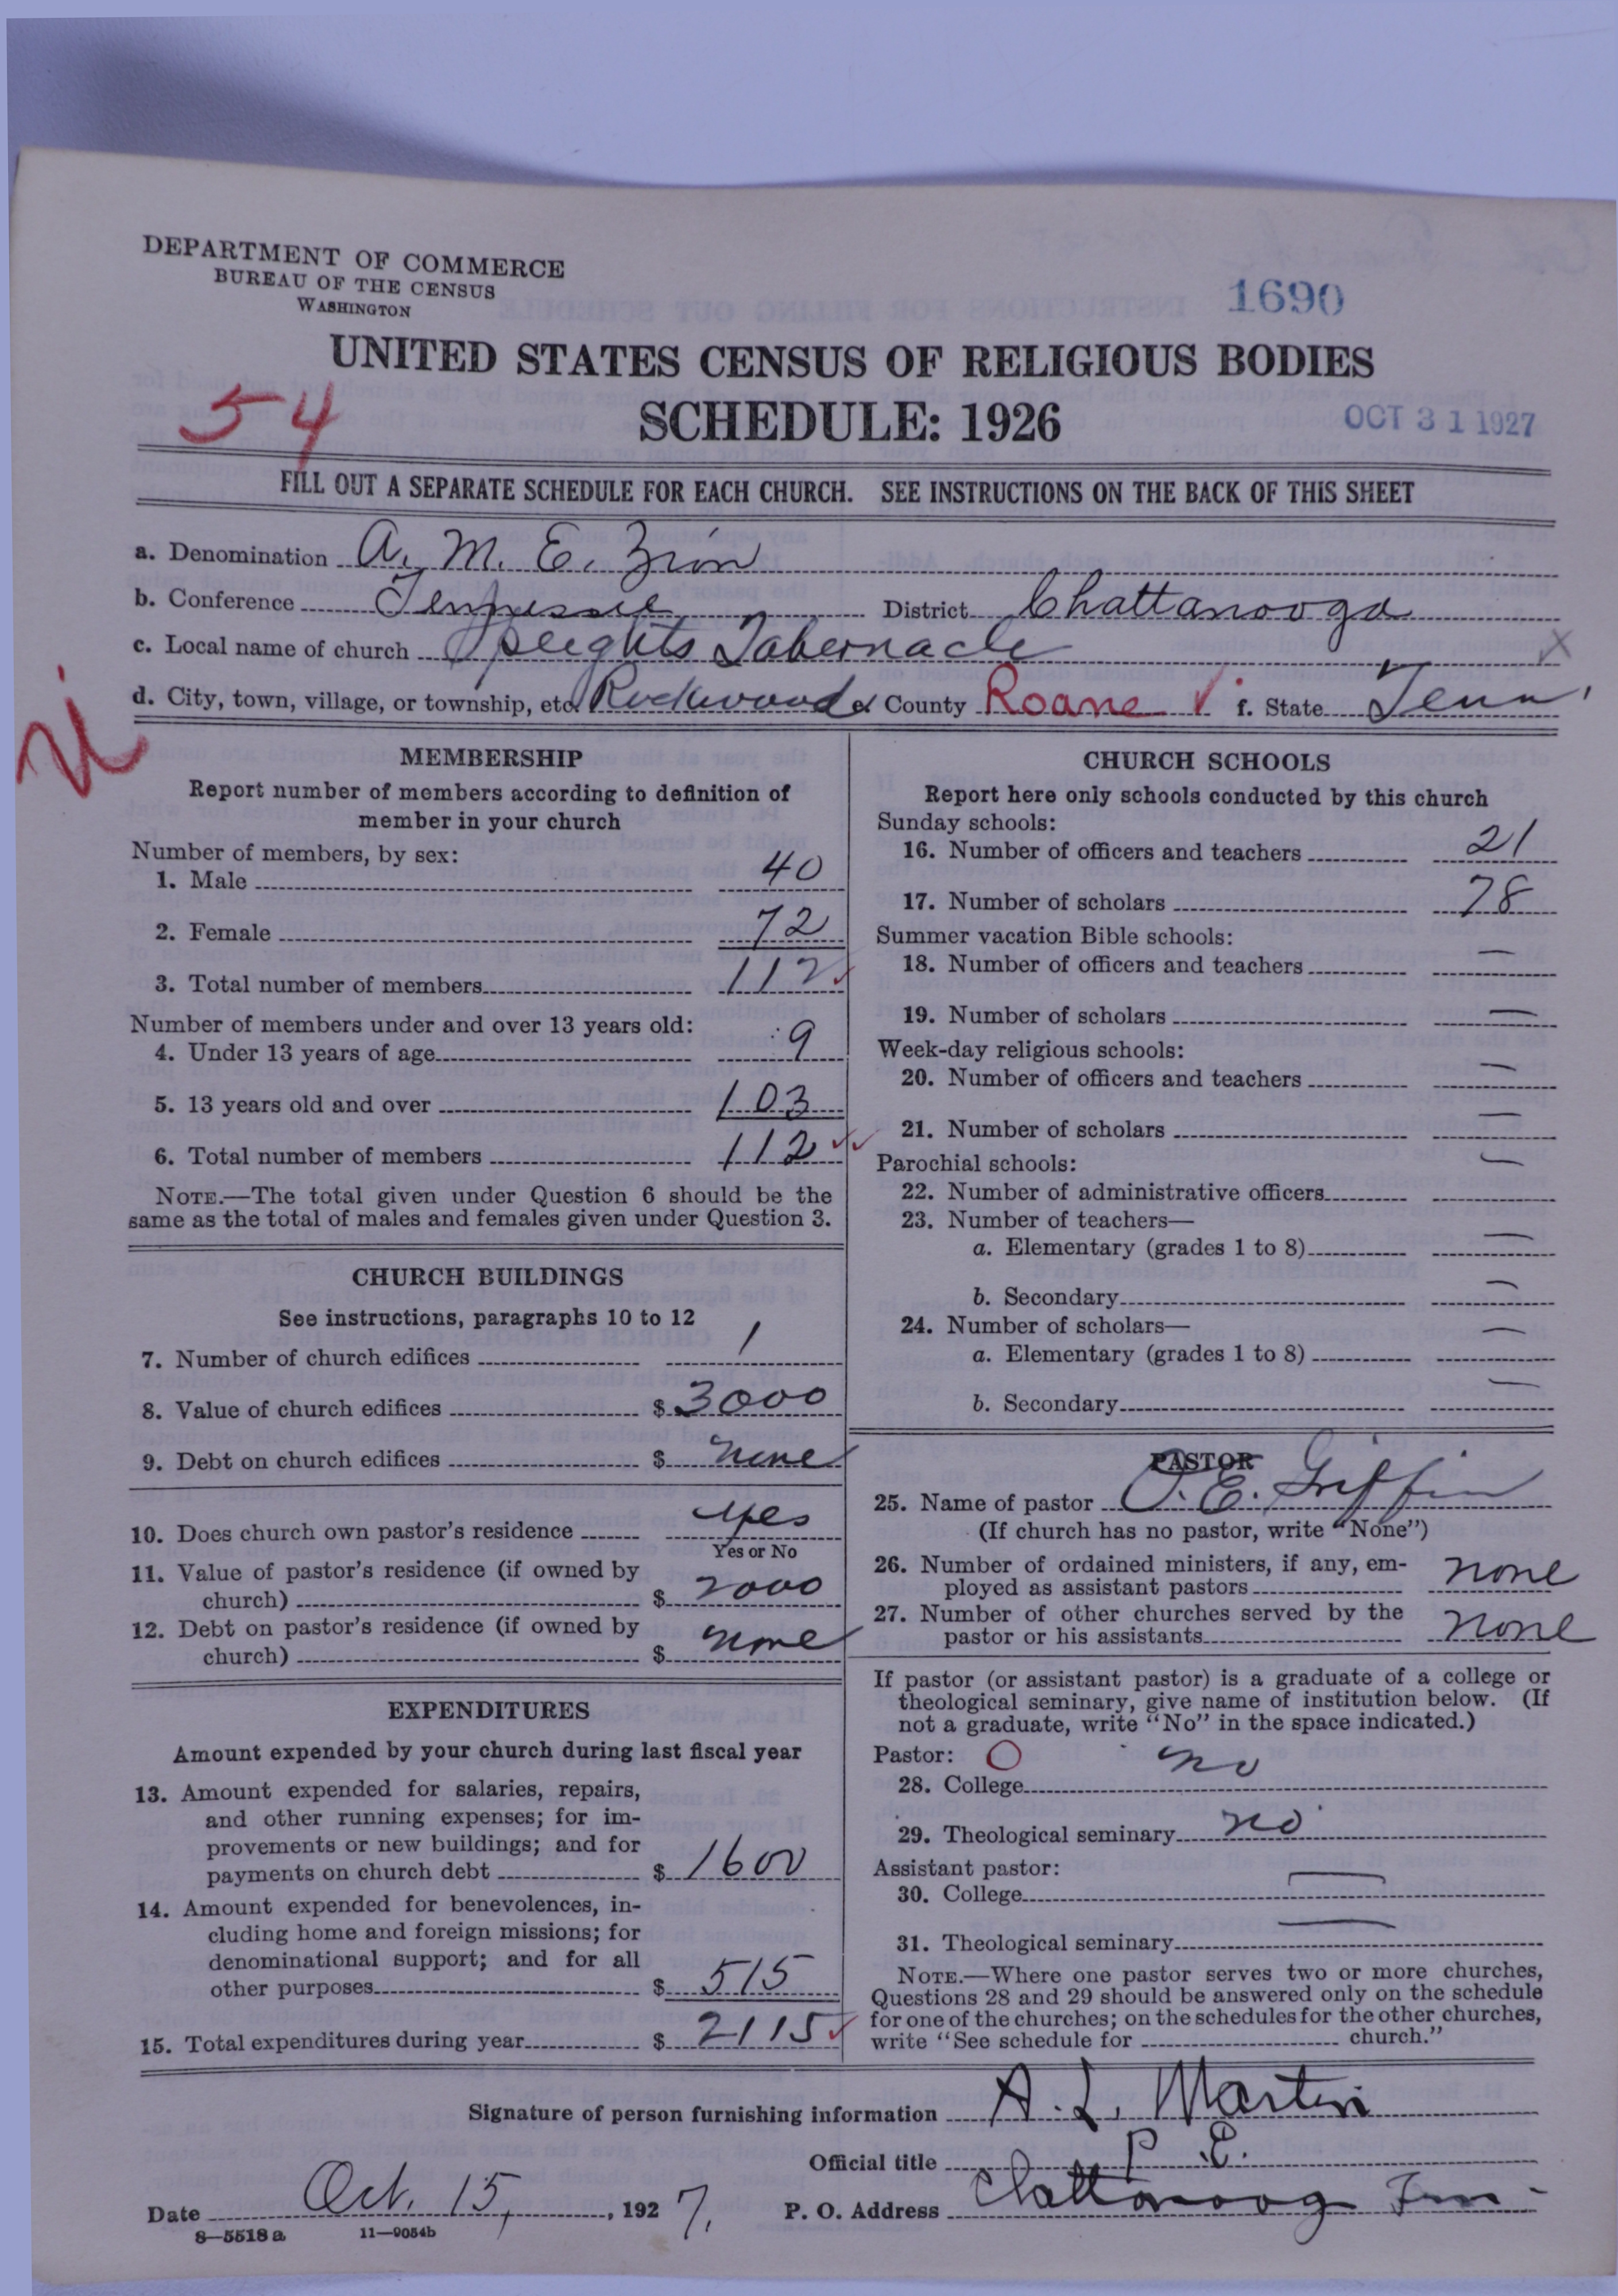 DEPARTMENT OF COMMERCE
BUREAU OF THE CENSUS
WASHINGTON
1690
UNITED STATES CENSUS OF RELIGIOUS BODIES
54
SCHEDULE: 1926
OCT 31 1927
FILL OUT A SEPARATE SCHEDULE FOR EACH CHURCH. SEE INSTRUCTIONS ON THE BACK OF THIS SHEET
a. Denomination A. M. E. Zion
b. Conference Tennessee District Chattanooga
c. Local name of church Speights Tabernacle X
d. City, town, village, or township, etc. Rockwood e. County Roane f. State Tenn.
MEMBERSHIP
Report number of members according to definition of
member in your church
Number of members, by sex:
1. Male 40
2. Female 72
3. Total number of members 112
Number of members under and over 13 years old:
4. Under 13 years of age 9
5. 13 years old and over 103
6. Total number of members 112
NOTE.—The total given under Question 6 should be the
same as the total of males and females given under Question 3.
CHURCH BUILDINGS
See instructions, paragraphs 10 to 12
7. Number of church edifices 1
8. Value of church edifices $ 3000
9. Debt on church edifices $ none
10. Does church own pastor's residence yes
Yes or No
11. Value of pastor's residence (if owned by
church) $ 2000
12. Debt on pastor's residence (if owned by
church) $ none
EXPENDITURES
Amount expended by your church during last fiscal year
13. Amount expended for salaries, repairs,
and other running expenses; for im-
provements or new buildings; and for
payments on church debt $ 1600
14. Amount expended for benevolences, in-
cluding home and foreign missions; for
denominational support; and for all
other purposes $ 515
15. Total expenditures during year $ 2115
CHURCH SCHOOLS
Report here only schools conducted by this church
Sunday schools:
16. Number of officers and teachers 21
17. Number of scholars 78
Summer vacation Bible schools:
18. Number of officers and teachers —
19. Number of scholars —
Week-day religious schools:
20. Number of officers and teachers —
21. Number of scholars —
Parochial schools:
22. Number of administrative officers —
23. Number of teachers—
a. Elementary (grades 1 to 8) —
b. Secondary —
24. Number of scholars—
a. Elementary (grades 1 to 8) —
b. Secondary —
PASTOR
25. Name of pastor O. E. Griffin
(If church has no pastor, write "None")
26. Number of ordained ministers, if any, em-
ployed as assistant pastors none
27. Number of other churches served by the
pastor or his assistants none
If pastor (or assistant pastor) is a graduate of a college or
theological seminary, give name of institution below. (If
not a graduate, write "No" in the space indicated.)
Pastor: O
28. College no
29. Theological seminary no
Assistant pastor:
30. College —
31. Theological seminary —
NOTE.—Where one pastor serves two or more churches,
Questions 28 and 29 should be answered only on the schedule
for one of the churches; on the schedules for the other churches,
write "See schedule for church."
Signature of person furnishing information A. L. Martin
Official title P. E.
Date Oct. 15, 1927. P. O. Address Chattanooga Tenn.
8—5518 a 11—9054b